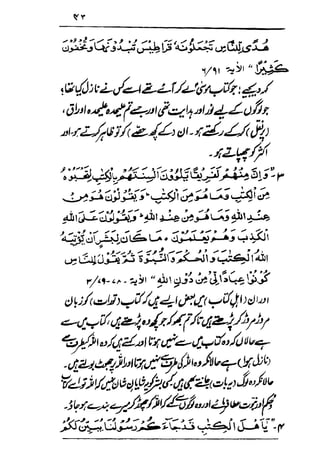 ۴۳
هُدًى لِّلنَّاسِ تَجْعَلُوْنَهٗ قَرَاطِيْسَ تُبْدُوْنَهَا وَتُخْفُوْنَ
كَثِيْرًا" الآیۃ ۶/۹۱
کہہ دیجیے: جو کتاب موسیٰ لے کر آئے تھے اسے کس نے نازل کیا تھا؟
جو لوگوں کے لیے نور اور ہدایت تھی اور جسے تم علیحدہ علیحدہ اوراق،
(پر نقل) کرکے رکھتے ہو۔ ان (کے کچھ حصے) کو تو ظاہر کرتے ہو، اور
اکثر کو چھپاتے ہو۔
۳۔ "وَاِنَّ مِنْهُمْ لَفَرِيْقًا يَّلْوٗنَ اَلْسِنَتَهُمْ بِالْكِتٰبِ لِتَحْسَبُوْهُ
مِنَ الْكِتٰبِ وَمَا هُوَ مِنَ الْكِتٰبِ، وَيَقُوْلُوْنَ هُوَ مِنْ
عِنْدِ اللّٰهِ وَمَا هُوَ مِنْ عِنْدِ اللّٰهِ، وَيَقُوْلُوْنَ عَلَى اللّٰهِ
الْكَذِبَ وَهُمْ يَعْلَمُوْنَ، مَا كَانَ لِبَشَرٍ اَنْ يُّؤْتِيَهُ
اللّٰهُ الْكِتٰبَ وَالْحُكْمَ وَالنُّبُوَّةَ ثُمَّ يَقُوْلَ لِلنَّاسِ
كُوْنُوْا عِبَادًا لِّيْ مِنْ دُوْنِ اللّٰهِ" الآیۃ ۷۸-۳/۷۹
اور ان (اہل کتاب) میں بعض ایسے ہیں کہ کتاب (تورات) کو زبان
مروڑ مروڑ کر پڑھتے ہیں تاکہ تم سمجھو کہ جو کچھ وہ پڑھتے ہیں، کتاب میں سے
ہے حالاں کہ وہ کتاب میں سے نہیں ہوتا اور کہتے ہیں کہ وہ اللہ کی طرف سے
(نازل ہوا) ہے حالانکہ وہ اللہ کی طرف سے نہیں ہوتا اور اللہ پر جھوٹ بولتے ہیں۔
حالانکہ وہ لوگ (یہ بات) جانتے بھی ہیں کسی بشر کو شایان شان نہیں کہ اللہ تو اسے کتاب
حکم اور نبوت عطا فرمائے اور وہ لوگوں سے کہے کہ اللہ کو چھوڑ کر میرے بندے ہو جاؤ۔
۴۔ "يٰٓاَهْلَ الْكِتٰبِ قَدْ جَآءَكُمْ رَسُوْلُنَا يُبَيِّنُ لَكُمْ